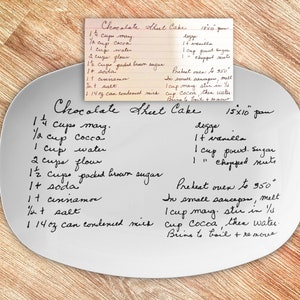 Chocolate Sheet Cake 15x10" pan
1 1/4 cups marg.
1/2 cup cocoa
1 cup water
2 cups flour
1 1/2 cups packed brown sugar
1 t soda
1 t cinnamon
1/2 t salt
1 14 oz can condensed milk
eggs
1 t vanilla
1 cup powd. sugar
1 " chopped nuts
Preheat oven to 350°
In small saucepan, melt
1 cup marg. stir in 1/2
cup cocoa, then water
Bring to boil + remove
Chocolate Sheet Cake 15x10" pan
1 1/4 cups marg.
1/2 cup cocoa
1 cup water
2 cups flour
1 1/2 cups packed brown sugar
1 t soda
1 t cinnamon
1/2 t salt
1 14 oz can condensed milk
eggs
1 t vanilla
1 cup powd. sugar
1 " chopped nuts
Preheat oven to 350°
In small saucepan, melt
1 cup marg. stir in 1/2
cup cocoa, then water
Bring to boil + remove